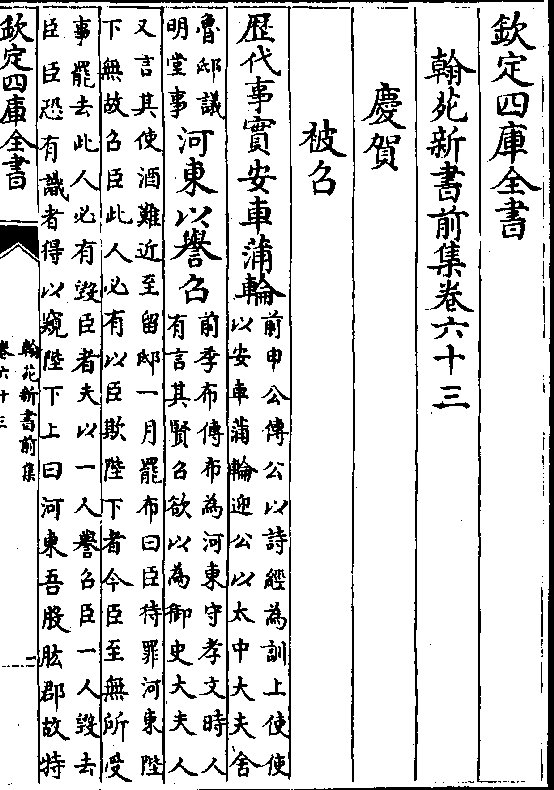 欽定四庫全書
翰苑新書前集卷六十三
慶賀
被召
歴代事實安車蒲輪前申公傳公以詩經為訓上使使
以安車蒲輪迎公以太中大夫舍
魯邸議
明堂事河東以譽召前季布傳布為河東守孝文時人
有言其賢召欲以為御史大夫人
又言其使酒難近至留邸一月罷布曰臣待罪河東陛
下無故召臣此人必有以臣欺陛下者今臣至無所受
事罷去此人必有毀臣者夫以一人譽召臣一人毀去
臣臣恐有識者得以窺陛下上曰河東吾股肱郡故特
欽定四庫全書
翰苑新書前集
卷六十三
一